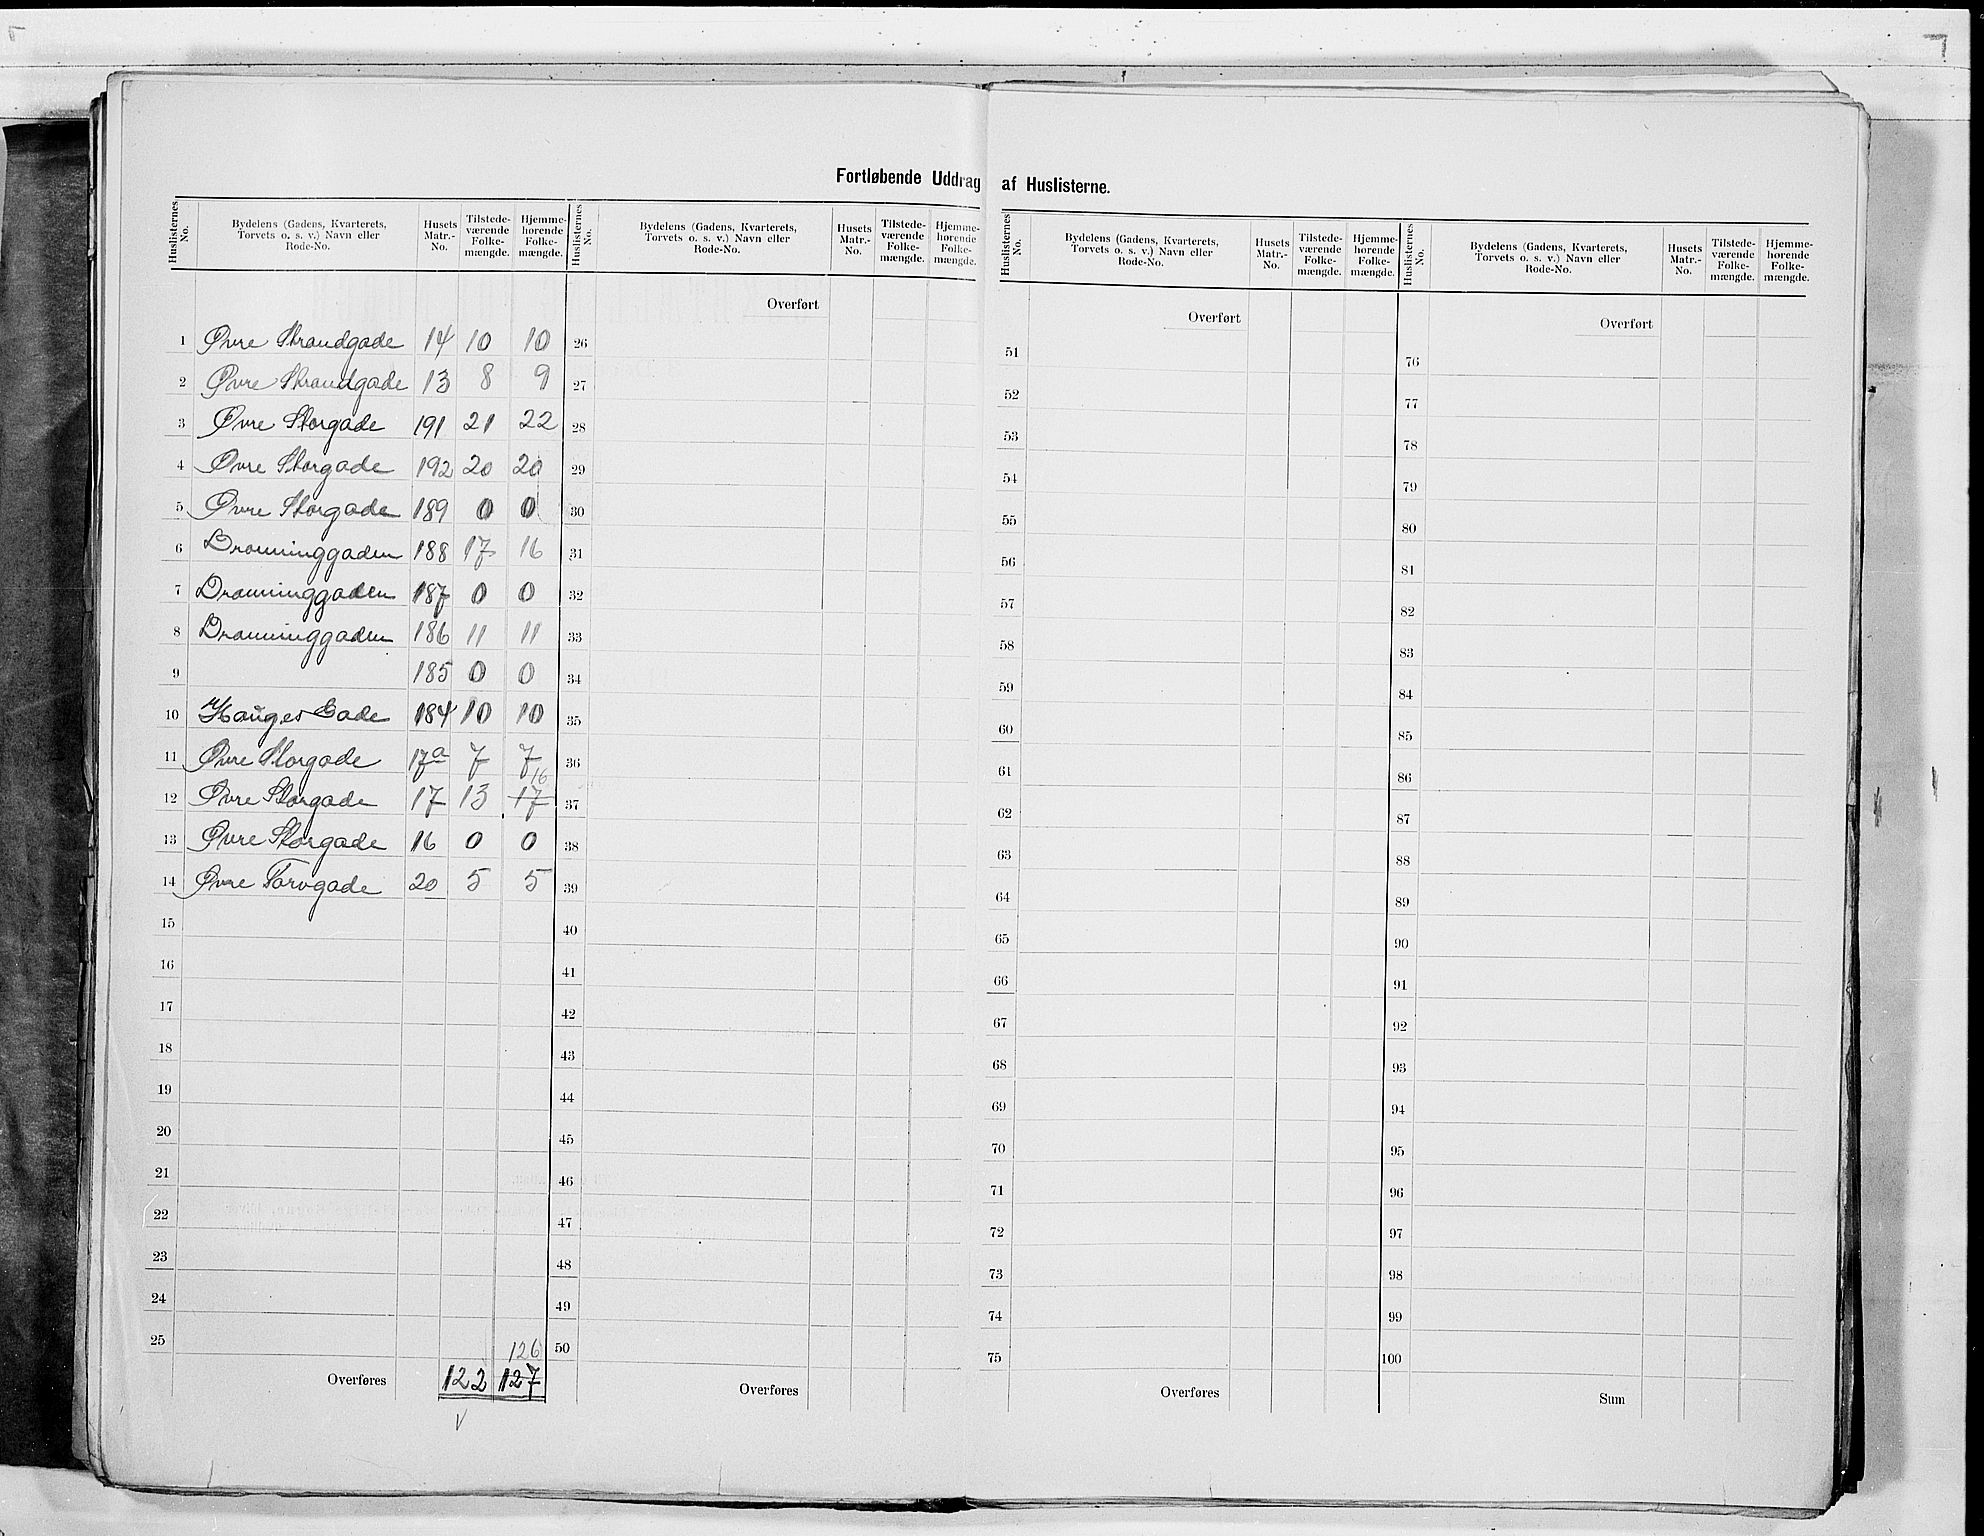 Fortløbende Uddrag af Huslisterne.
Huslisternes No. | Bydelens (Gadens, Kvarterets, Torvets o. s. v.) Navn eller Rode-No. | Husets Matr.-No. | Tilstede-værende Folke-mængde. | Hjemme-hørende Folke-mængde.
1 Øvre Strandgade 14 10 10
2 Øvre Strandgade 13 8 9
3 Øvre Storgade 191 21 22
4 Øvre Storgade 192 20 20
5 Øvre Storgade 189 0 0
6 Dronninggaden 188 17 16
7 Dronninggaden 187 0 0
8 Dronninggaden 186 11 11
9 185 0 0
10 Hauges Gade 184 10 10
11 Øvre Storgade 17a 7 7
16
12 Øvre Storgade 17 13 17
13 Øvre Storgade 16 0 0
14 Øvre Torvgade 20 5 5
15
16
17
18
19
20
21
22
23
24
25
126
Overføres 122 127
Huslisternes No. | Bydelens (Gadens, Kvarterets, Torvets o. s. v.) Navn eller Rode-No. | Husets Matr.-No. | Tilstede-værende Folke-mængde. | Hjemme-hørende Folke-mængde.
Overført
26
27
28
29
30
31
32
33
34
35
36
37
38
39
40
41
42
43
44
45
46
47
48
49
50
Overføres
Huslisternes No. | Bydelens (Gadens, Kvarterets, Torvets o. s. v.) Navn eller Rode-No. | Husets Matr.-No. | Tilstede-værende Folke-mængde. | Hjemme-hørende Folke-mængde.
Overført
51
52
53
54
55
56
57
58
59
60
61
62
63
64
65
66
67
68
69
70
71
72
73
74
75
Overføres
Huslisternes No. | Bydelens (Gadens, Kvarterets, Torvets o. s. v.) Navn eller Rode-No. | Husets Matr.-No. | Tilstede-værende Folke-mængde. | Hjemme-hørende Folke-mængde.
Overført
76
77
78
79
80
81
82
83
84
85
86
87
88
89
90
91
92
93
94
95
96
97
98
99
100
Sum